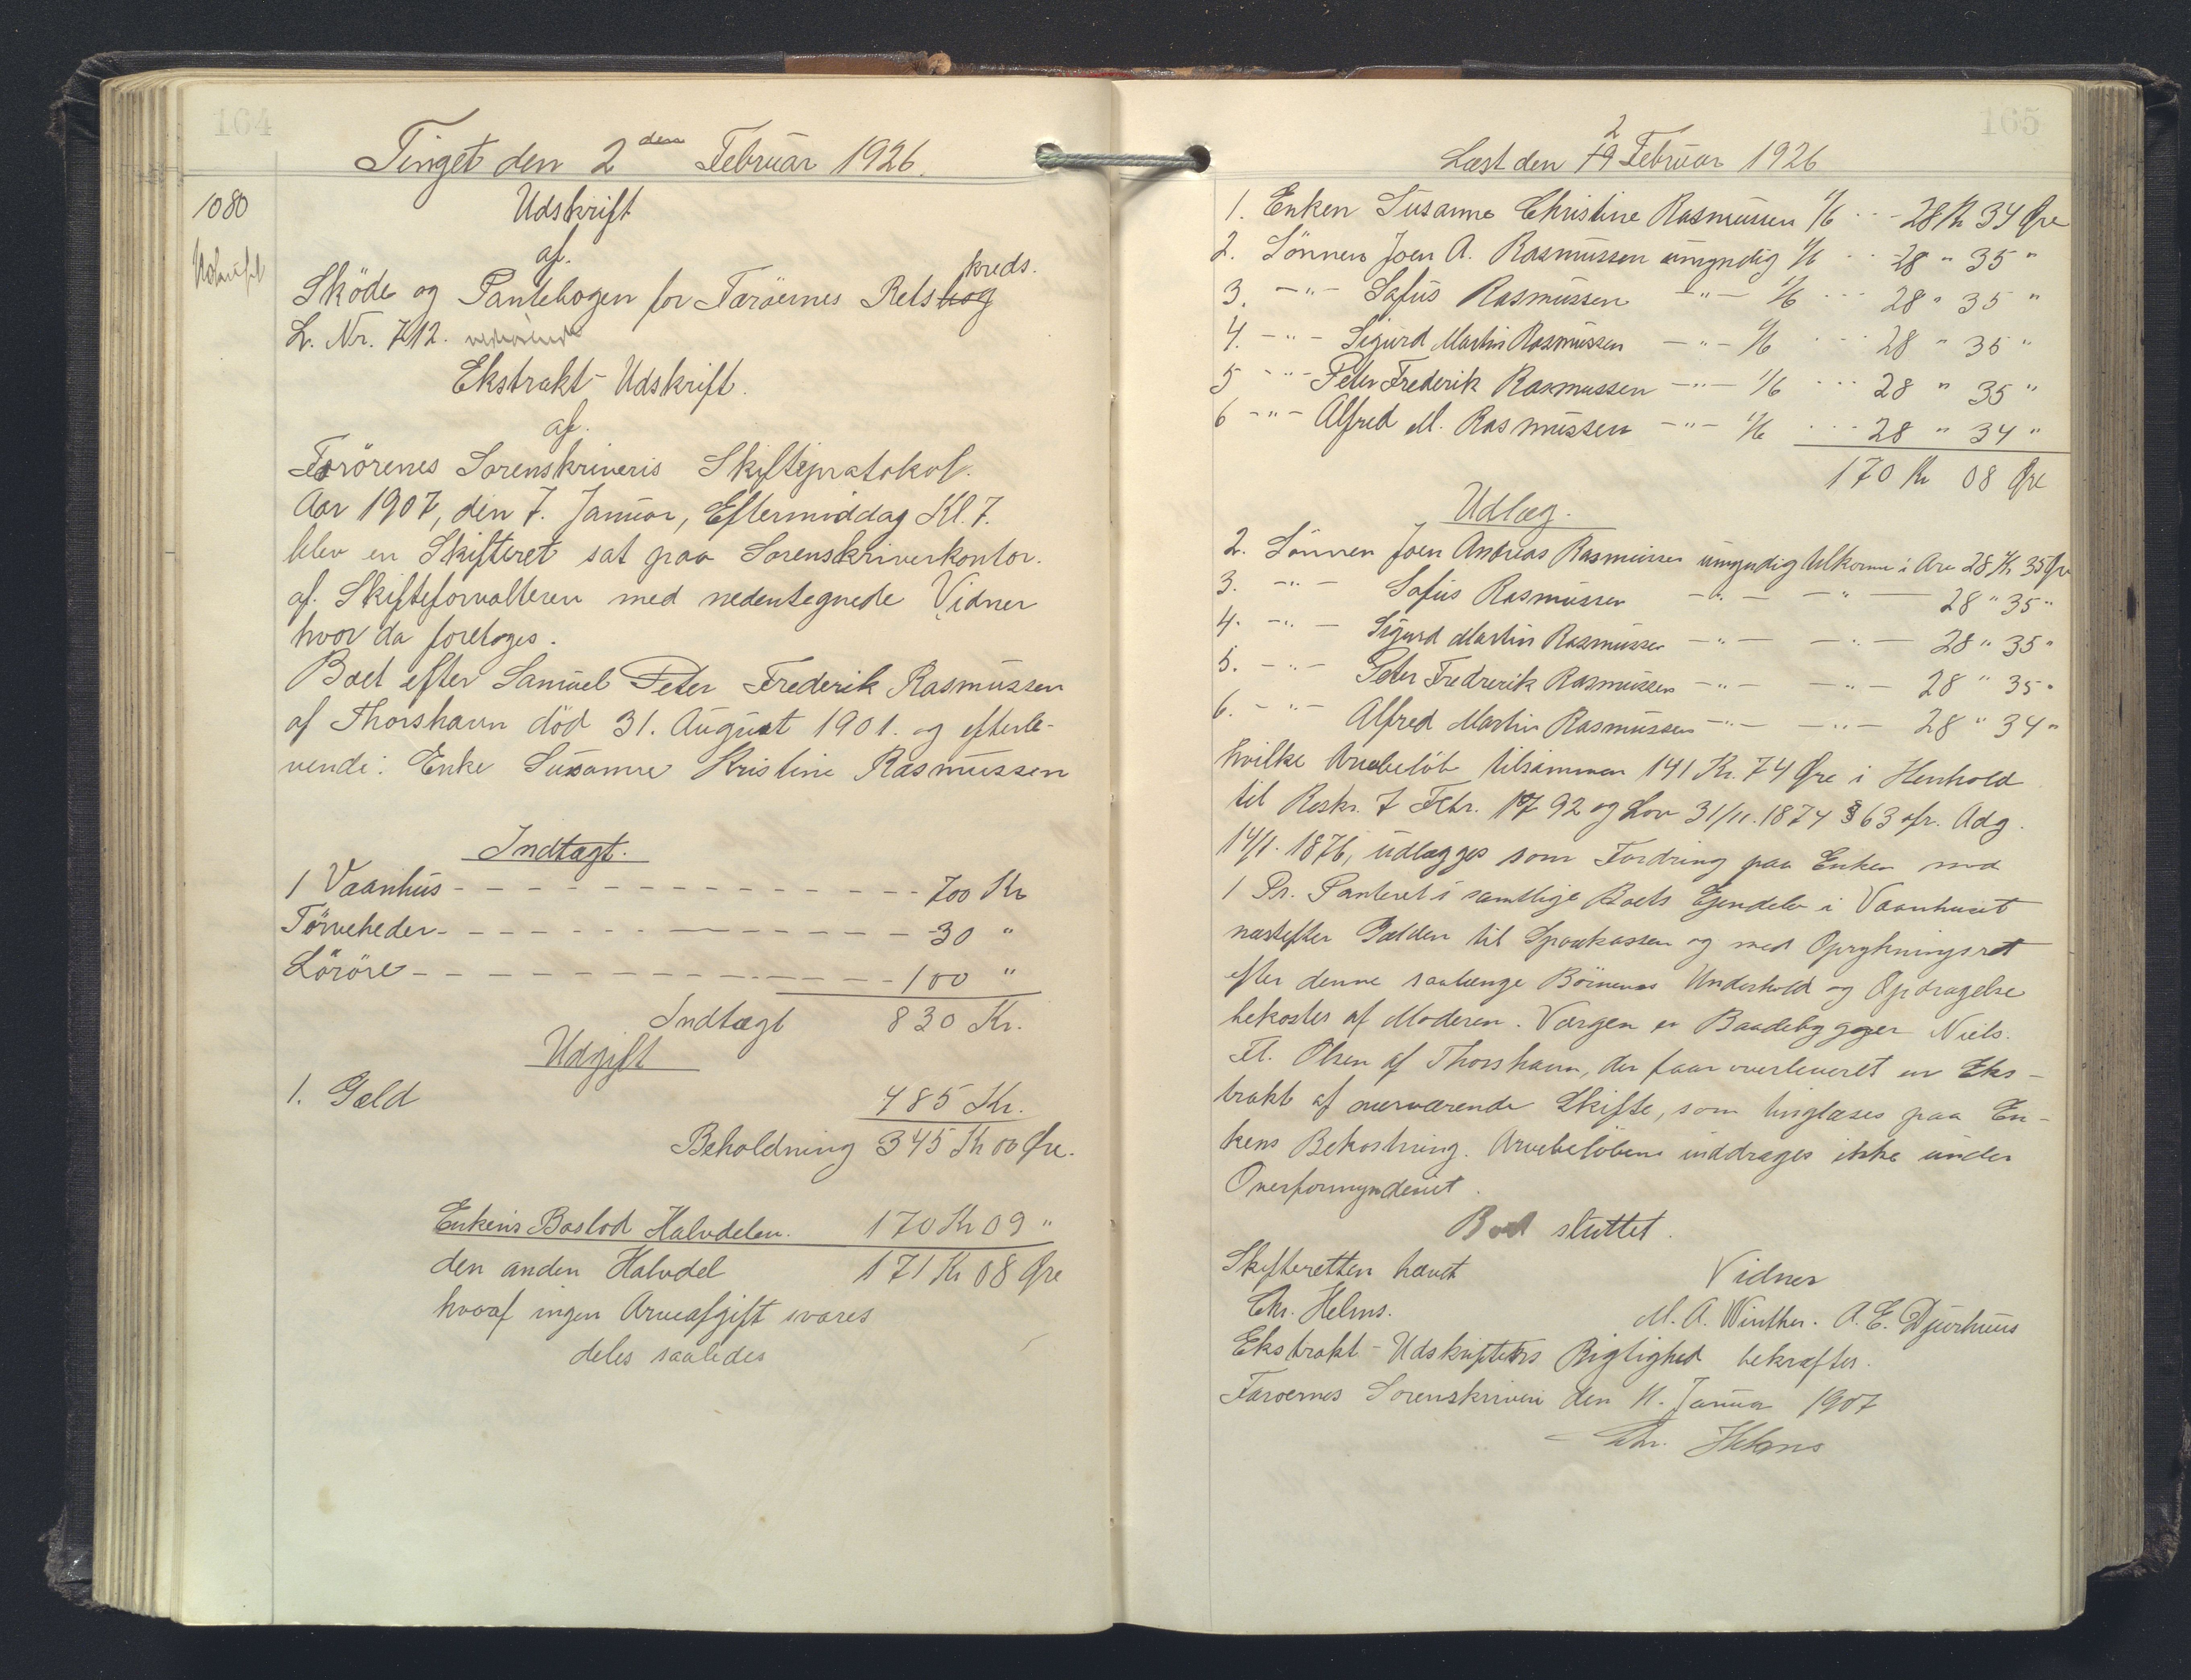 164
Tinget den 2den Februar 1926.
1080
Udskrift
af.
kreds.
Sköde og Pantebogen for Færöernes Retsbog
L. Nr. 712.
Ekstrakt-Udskrift.
af.
Færörenes Sorenskriveris Skifteprotokol.
Aar 1907, den 7. Januar, Eftermiddag Kl. 7.
blev en Skifteret sat paa Sorenskriverkontor.
af. Skifteforvalteren med nedentegnede Vidner
hvor da foretoges.
Boet efter Samuel Peter Frederik Rasmussen
af Thorshavn död 31. August 1901. og efterle-
vende: Enke Susanne Kristine Rasmussen
Indtægt.
1 Vaanhus - - - 700 Kr
Törveheder - - - 30 "
Löröre - - - 100 "
Indtægt 830 Kr.
Udgift
1. Gæld 485 Kr.
Beholdning 345 Kr 00 Øre.
Enkens Boslod Halvdelen. 170 Kr 09 "
den anden Halvdel 171 Kr 08 Øre
hvoraf ingen Arveafgift svares
deles saaledes
165
2
Læst den 19 Februar 1926
1. Enken Susanne Christine Rasmussen 1/6 - - - 28 Kr 34 Øre
2. Sönnen Joen A. Rasmussen umyndig 1/6 - - - 28 " 35 "
3. - " - Safus Rasmussen - " - 1/6 - - - 28 " 35 "
4. - " - Sigurd Martin Rasmussen - " - 1/6 - - - 28 " 35 "
5 - " - Peter Frederik Rasmussen - " - 1/6 - - - 28 " 35 "
6 - " - Alfred M. Rasmussen - " - 1/6 - - - 28 " 34 "
170 Kr 08 Øre
Udlæg.
2. Sönnen Joen Andreas Rasmussen umyndig tilkomne i Arv 28 Kr 35 Øre
3. - " - Safus Rasmussen - " - - " - 28 " 35 "
4. - " - Sigurd Martin Rasmussen - " - - " - 28 " 35 "
5. - " - Peter Fredrerik Rasmussen - " - - " - 28 " 35 "
6. - " - Alfred Martin Rasmussen - " - - " - 28 " 34 "
hvilke Arvebelöb tilsammen 141 Kr. 74 Øre i Henhold
til Reskr. 7 Febr. 1792 og Lov 31/11. 1874 § 63 cfr. Adg.
14/1. 1876, udlægges som Fordring paa Enken med
1 Pr. Panteret i samtlige Boets Ejendele i Vaanhuset
næstefter Gælden til Sparkassen og med Oprykningsret
efter denne saalænge Börnenes Underhold og Opdragelse
bekostes af Moderen. Værgen er Baadebygger Niels.
Fl. Olsen af Thorshavn, der faar overleveret en Eks-
trakt af nærværende Skifte, som tinglæses paa En-
kens Bekostning. Arvebelöbene inddrages ikke under
Overformynderiet.
Boet sluttet.
Skifteretten hævet Vidner
Chr. Helms. M. A. Winther. A. E. Djurhuus
Ekstrakt-Udskriftens Rigtighed bekræfter.
Færoernes Sorenskriveri den 11. Januar 1907
Chr. Helms